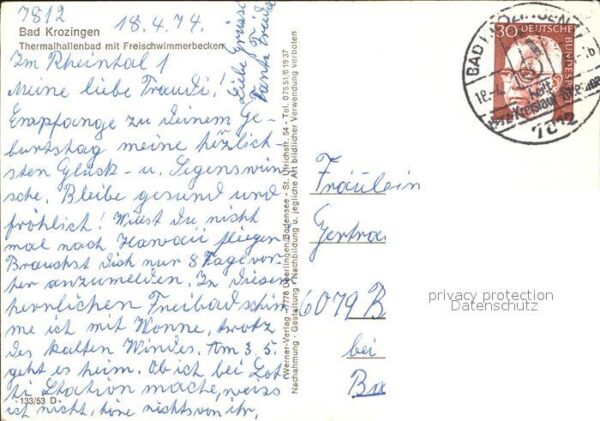 7812
18.4.74.
Bad Krozingen
Thermalhallenbad mit Freischwimmerbecken
Im Rheintal 1
Meine liebe Traudi!
Empfange zu Deinem Ge-
burtstag meine herzlich-
sten Glück- u. Segenswün-
sche. Bleibe gesund und
fröhlich! Willst Du nicht
mal nach Hawaii fliegen
Brauchst Dich nur 8 Tage vor-
her anzumelden. In diesem
herrlichen Freibad schwim
me ich mit Wonne, trotz
des kalten Windes. Am 3.5.
geht es heim. Ob ich bei Lot-
ti Station mache, weiss
ich nicht, höre nichts von ihr,
133/53 D
Liebe Grüsse
Tante Friedel
Werner-Verlag · 7770 Überlingen/Bodensee - St. Ulrichstr. 54 - Tel. 07551/61937
Nachahmung - Gestaltung - Nachbildung u. jegliche Art bildlicher Verwendung verboten
30
DEUTSCHE BUNDESPOST
BAD KROZINGEN
18.-4.
heilt
7812
Fräulein
Gertra
6079 B
bei
privacy protection
Datenschutz